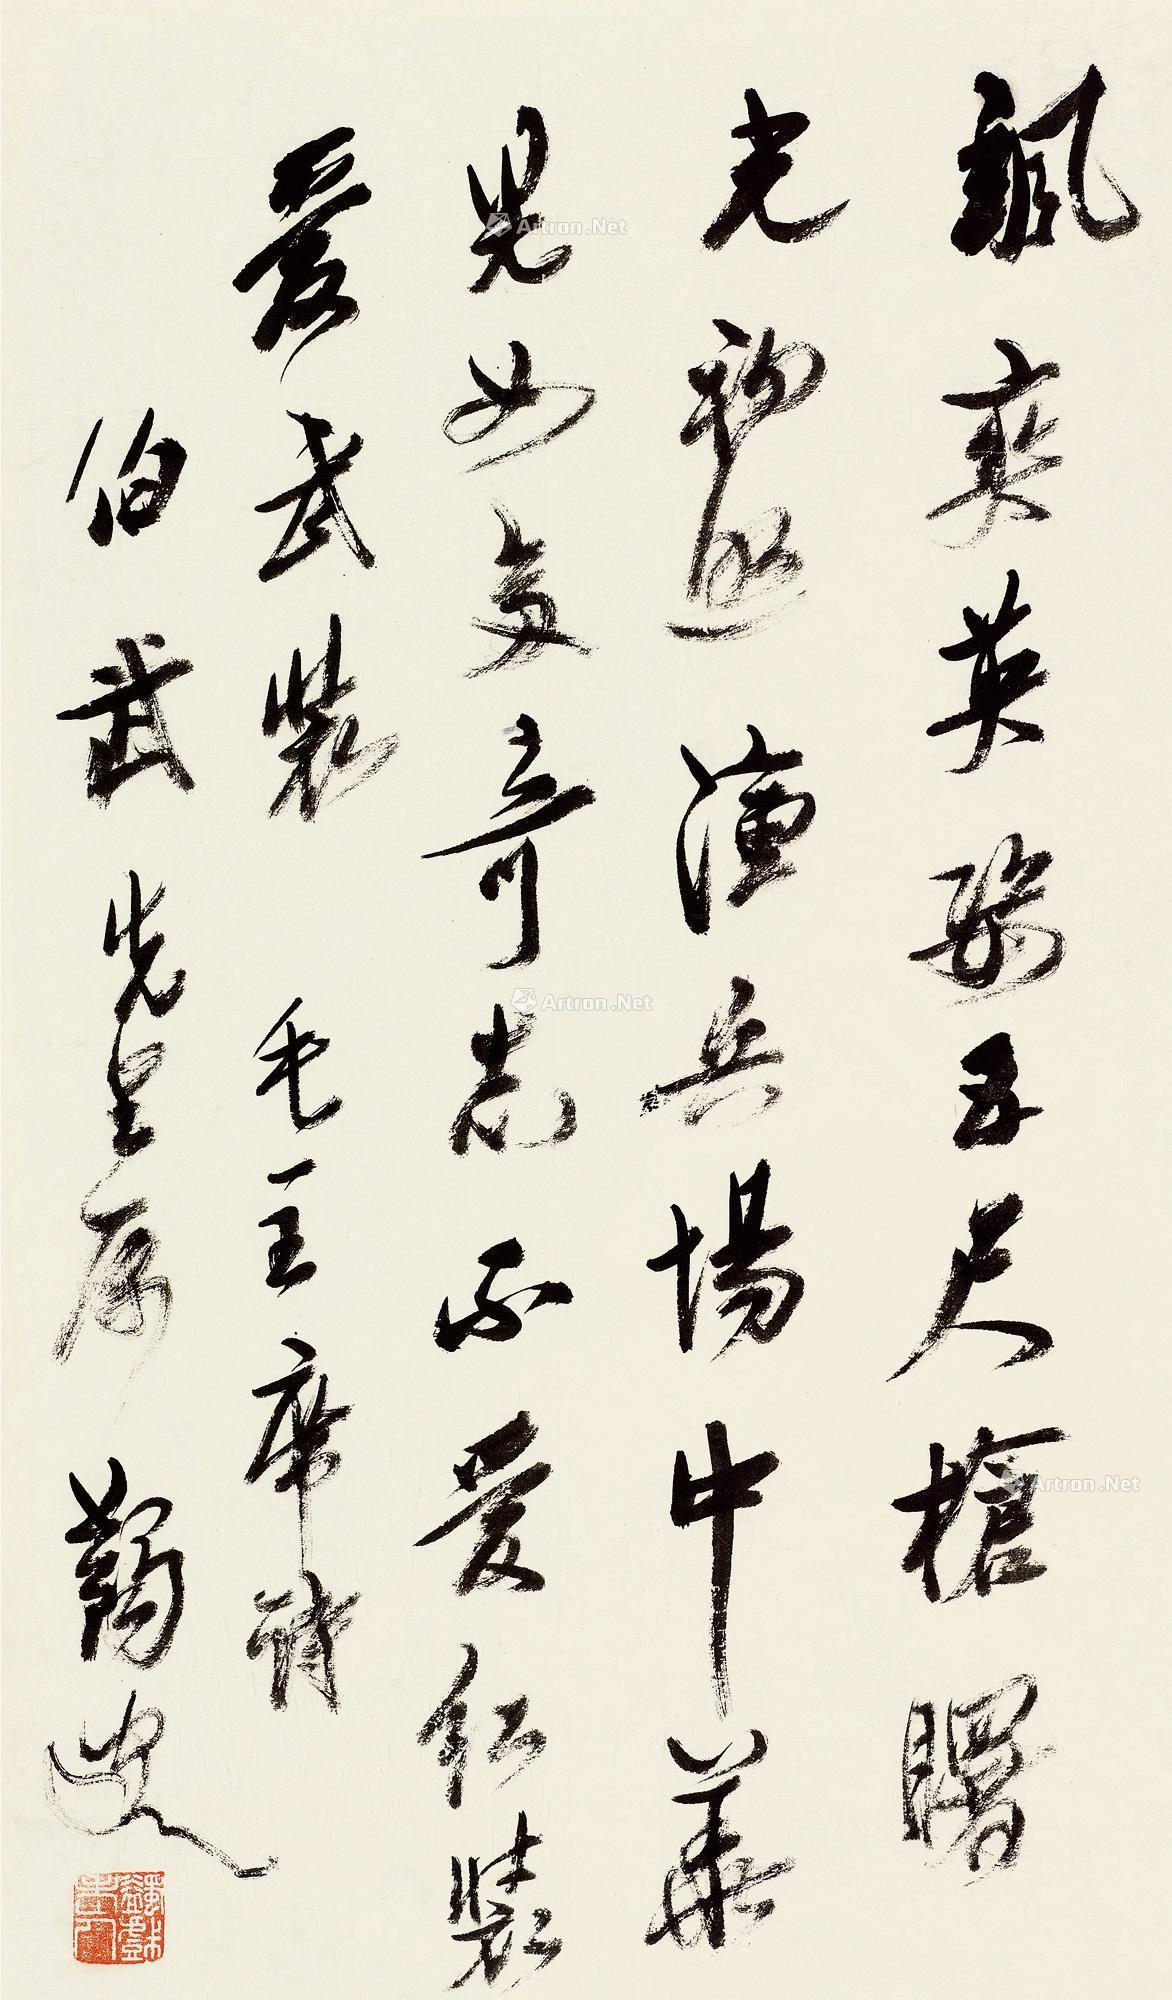 颯爽英姿五尺槍曙
光初照演兵場中華
兒女多奇志不愛紅裝
愛武裝 毛主席詩
伯武先生属
Artron.Net
Artron.Net
Artron.Net